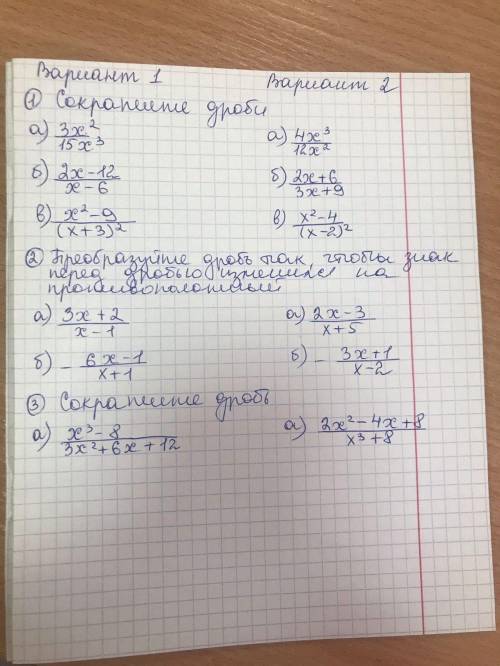 Вариант 1 Вариант 2
① Сократите дроби
а) 3x²/15x³ а) 4x³/12x²
б) 2x-12/x-6 б) 2x+6/3x+9
в) x²-9/(x+3)² в) x²-4/(x-2)²
② Преобразуйте дробь так, чтобы знак
перед дробью изменился на
противоположный
а) 3x+2/x-1 а) 2x-3/x+5
б) - 6x-1/x+1 б) - 3x+1/x-2
③ Сократите дробь
а) x³-8/3x²+6x+12 а) 2x²-4x+8/x³+8